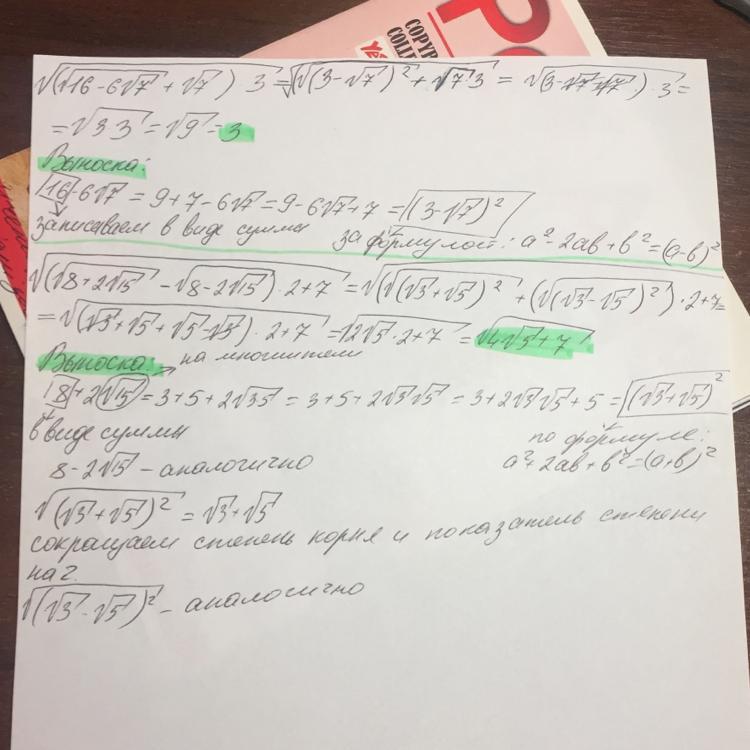 COPY
COLLE
Yes
√((√16-6√7 + √7) 3 = √(√(3-√7)² + √7·3 = √(3-√7+√7)·3 =
= √3·3 = √9 = 3
Выноска:
16-6√7 = 9+7-6√7 = 9-6√7+7 = (3-√7)²
записываем в виде суммы за формулой: a²-2ab+b²=(a-b)²
√(√8+2√15 - √8-2√15)·2+7 = √(√(√3+√5)² + (√(√3-√5)²)·2+7 =
= √(√3+√5+√5-√3)·2+7 = √2√5·2+7 = √4√5+7
Выноска: на множители
8+2√15 = 3+5+2√35 = 3+5+2√3√5 = 3+2√3√5+5 = (√3+√5)²
в виде суммы по формуле:
8-2√15 - аналогично a²+2ab+b²=(a+b)²
√(√3+√5)² = √3+√5
сокращаем степень корня и показатель степени
на 2.
√(√3-√5)² - аналогично